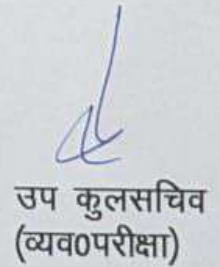 उप कुलसचिव
(व्यव0परीक्षा)